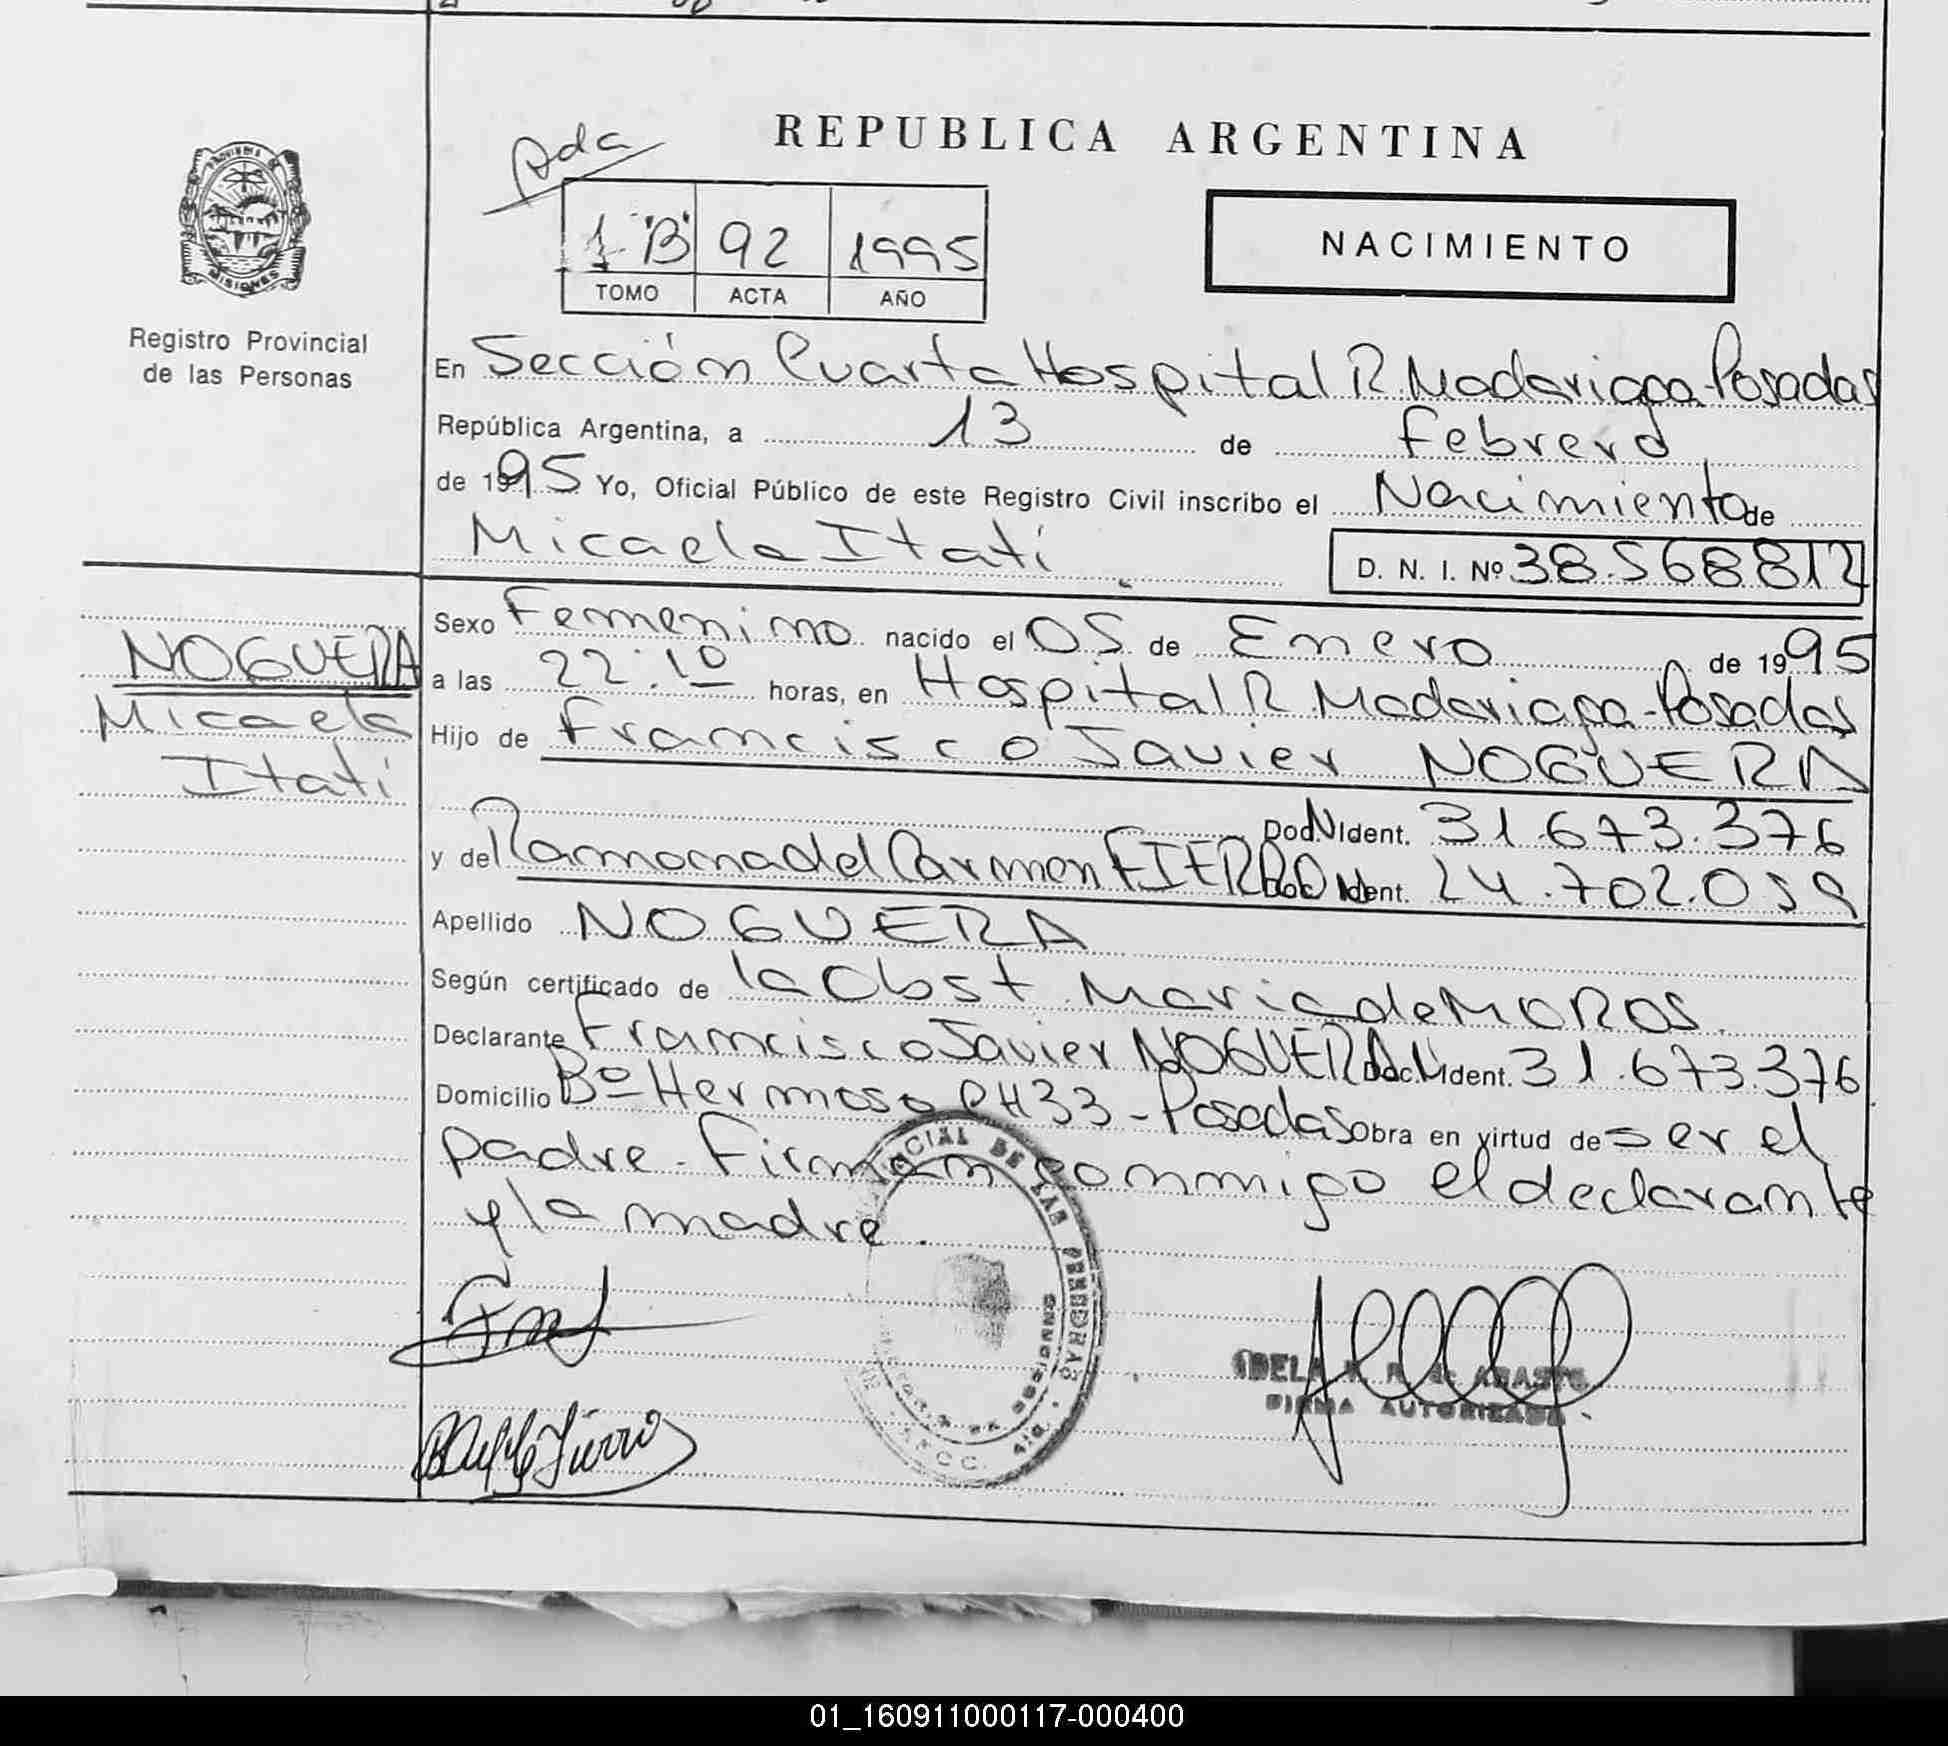 Ada
REPUBLICA ARGENTINA
1-"B" 92 1995
TOMO ACTA AÑO
NACIMIENTO
PROVINCIA DE
MISIONES
Registro Provincial
de las Personas
En Sección Cuarta Hospital R. Madariaga-Posadas
República Argentina, a 13 de Febrero
de 1995 Yo, Oficial Público de este Registro Civil inscribo el Nacimiento de
Micaela Itatí. D. N. I. Nº 38.568812
NOGUERA
Micaela
Itatí
Sexo Femenino nacido el 05 de Enero de 1995
a las 22:10 horas, en Hospital R. Madariaga-Posadas
Hijo de Francisco Javier NOGUERA
Doc. N Ident. 31.673.376
y de Ramona del Carmen FIERRO Doc. N Ident. 24.702.059
Apellido NOGUERA
Según certificado de la Obst Maria de MOROS.
Declarante Francisco Javier NOGUERA Doc. N Ident. 31.673.376
Domicilio Bº Hermoso CH33-Posadas obra en virtud de ser el
padre-Firman conmigo el declarante
y la madre.
DE LAS PERSONAS
FIRMA AUTORIZADA
01_160911000117-000400